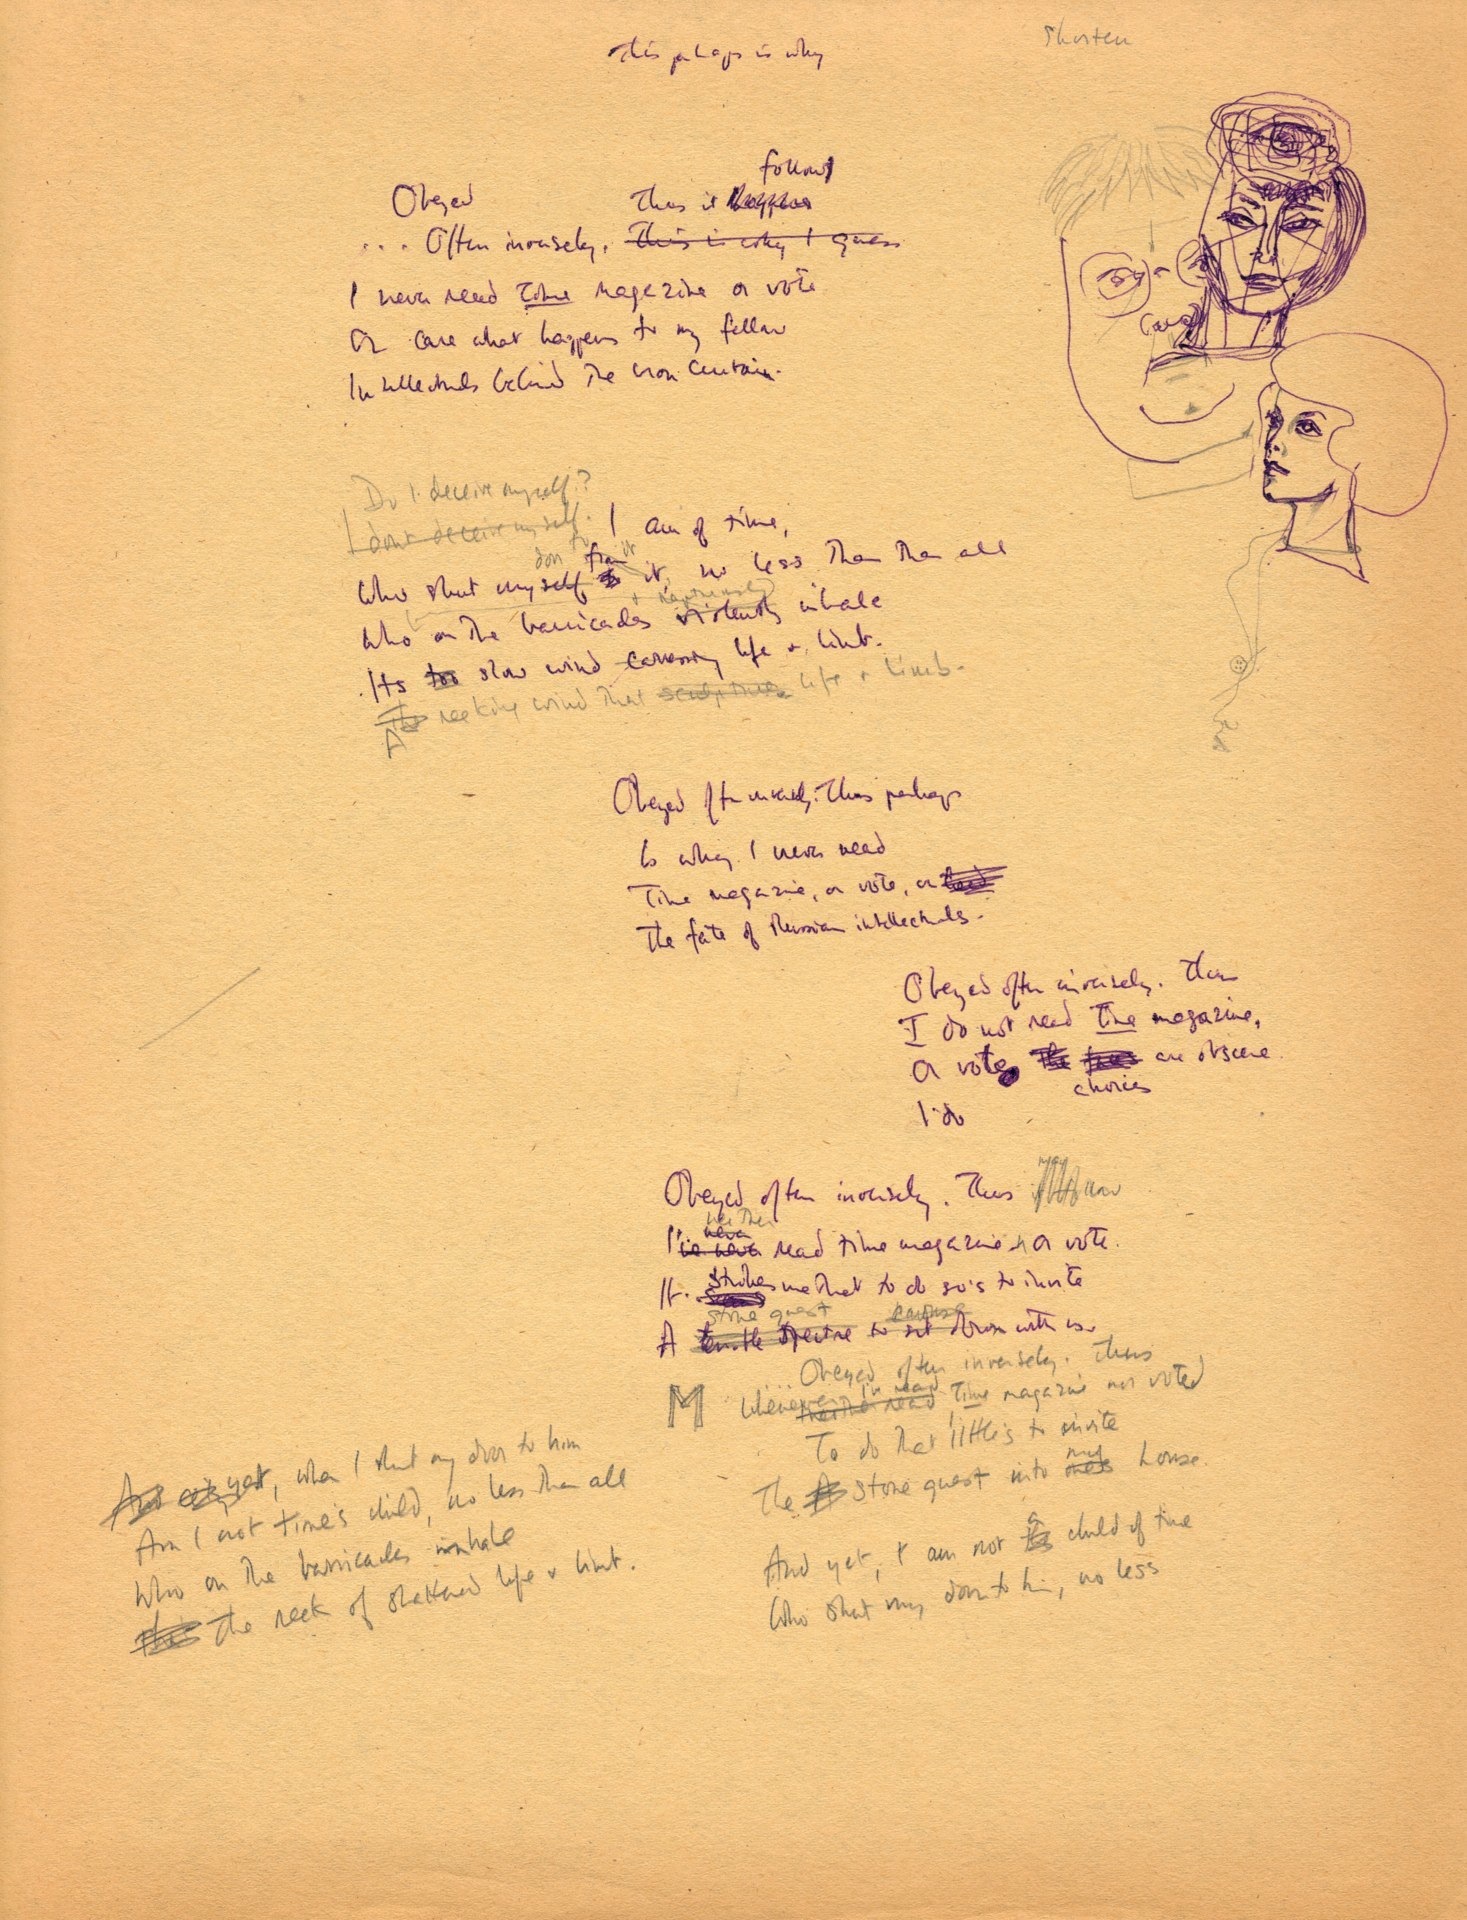 This perhaps is why
Shorten
follows
Obeyed Thus it happens
. . . Often inversely. This is why I guess
I never read Time magazine or vote
Or care what happens to my fellow
Intellectuals behind the iron curtain.
Do I deceive myself?
I don't deceive myself. I am of time,
door to
from it
Who shut myself to it, no less than than all
Who on the barricades violently inhale
Its too slow wind carrying life & limb.
The reeking wind that life & limb.
A
Obeyed often inversely. Thus perhaps
Is why I never read
Time magazine, or vote, or
The fate of Russian intellectuals.
Obeyed often inversely. Thus
I do not read Time magazine,
Or vote the are obscene.
choices
I do
Obeyed often inversely. Thus
neither
never
I've never read time magazine nor vote.
strikes
It seems me that to do so's to invite
stone guest
A terrible spectre to sit down with us.
Obeyed often inversely. Thus
I've read
M Time magazine nor voted
To do that little's to invite
my
The A stone guest into one's house.
And yet, I am not a child of time
Who shut my door to him, no less
And yet, when I shut my door to him
Am I not time's child, no less than all
Who on the barricades inhale
The reek of shattered life & limb.